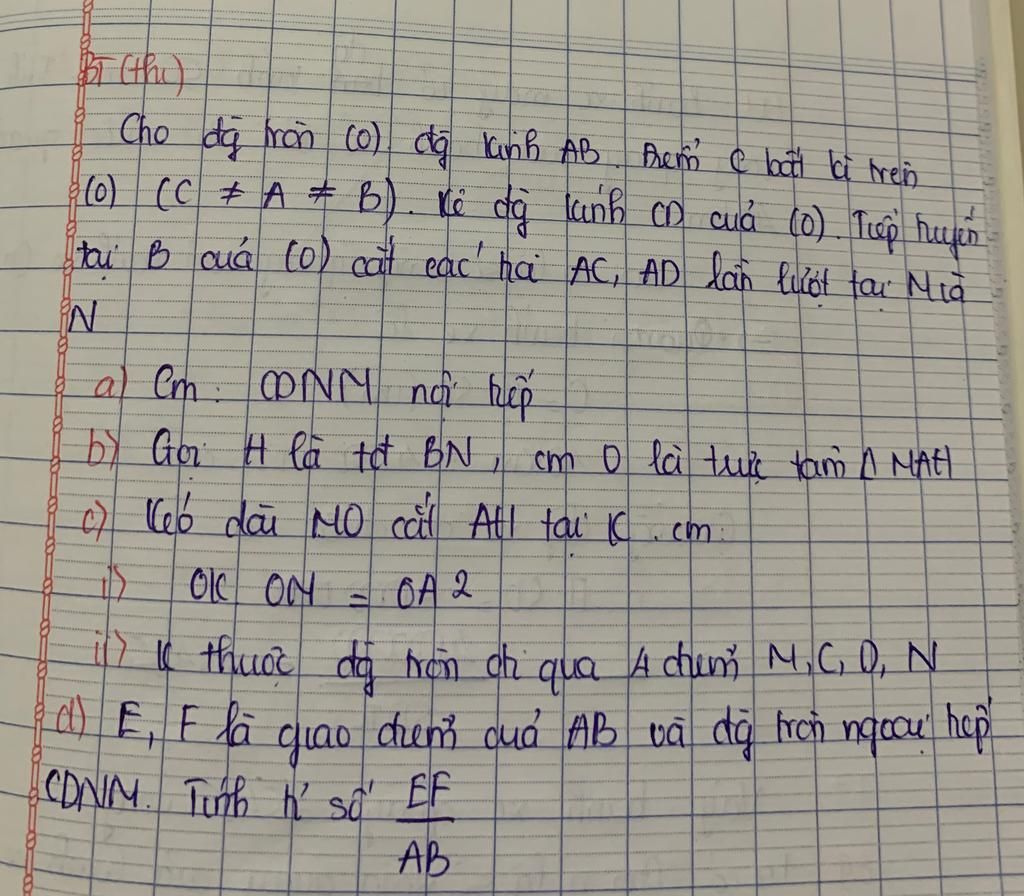 BT (thi)
Cho đg tròn (O) đg kính AB. Điểm C bất kì trên
(O) (C ≠ A ≠ B). Kẻ đg kính CD của (O). Tiếp tuyến
tại B của (O) cắt các tia AC, AD lần lượt tại M và
N
a) Cm: CDNM nội tiếp
b) Gọi H là tđ BN, cm O là trực tâm Δ MAH
c) Kéo dài MO cắt AH tại K. cm:
i) OK OM = OA2
ii) K thuộc đg tròn đi qua 4 điểm M, C, D, N
d) E, F là giao điểm của AB và đg tròn ngoại tiếp
CDNM. Tính tỉ số EF
AB